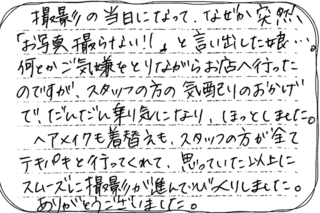 撮影の当日になって、なぜか突然、
「お写真撮らない!!」と言い出した娘…。
何とかご気嫌をとりながらお店へ行った
のですが、スタッフの方の気配りのおかげ
で、だんだん乗り気になり、ほっとしました。
ヘアメイクも着替えも、スタッフの方が全て
テキパキと行ってくれて、思っていた以上に
スムーズに撮影が進んでびっくりしました。
ありがとうございました。